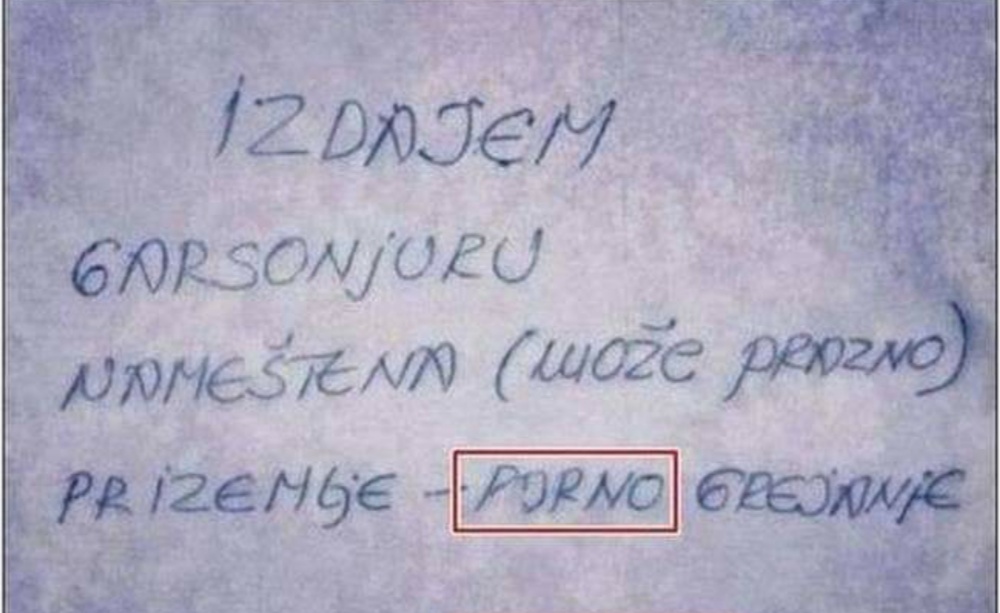 IZDAJEM
GARSONjURU
NAMEŠTENA (može PRAZNO)
PRIZEMLjE - PARNO GREJANjE